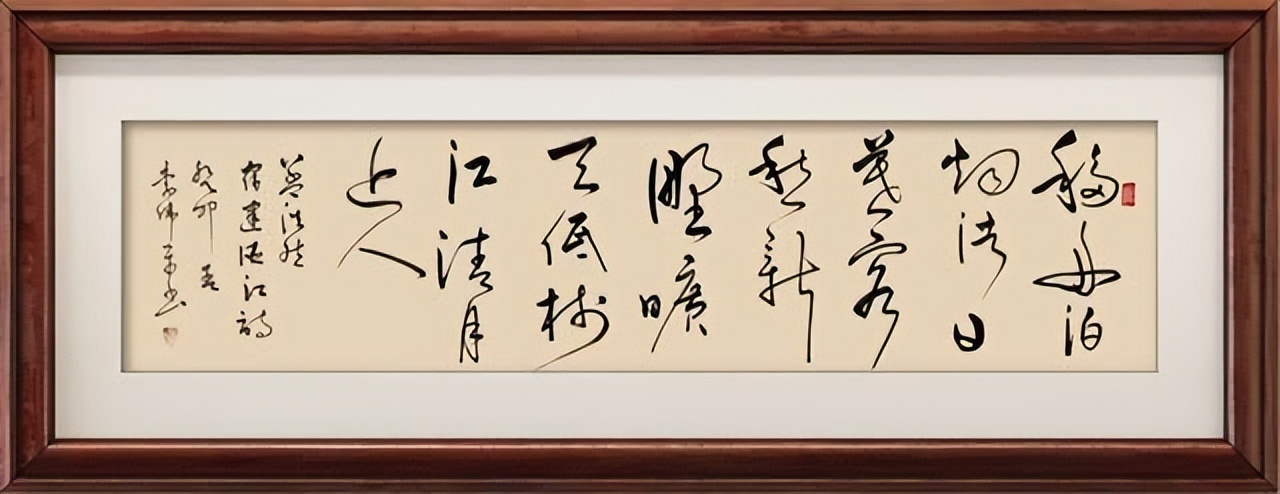 移舟泊
烟渚日
暮客
愁新
野曠
天低树
江清月
近人
孟浩然
宿建德江诗
癸卯春
李伟书